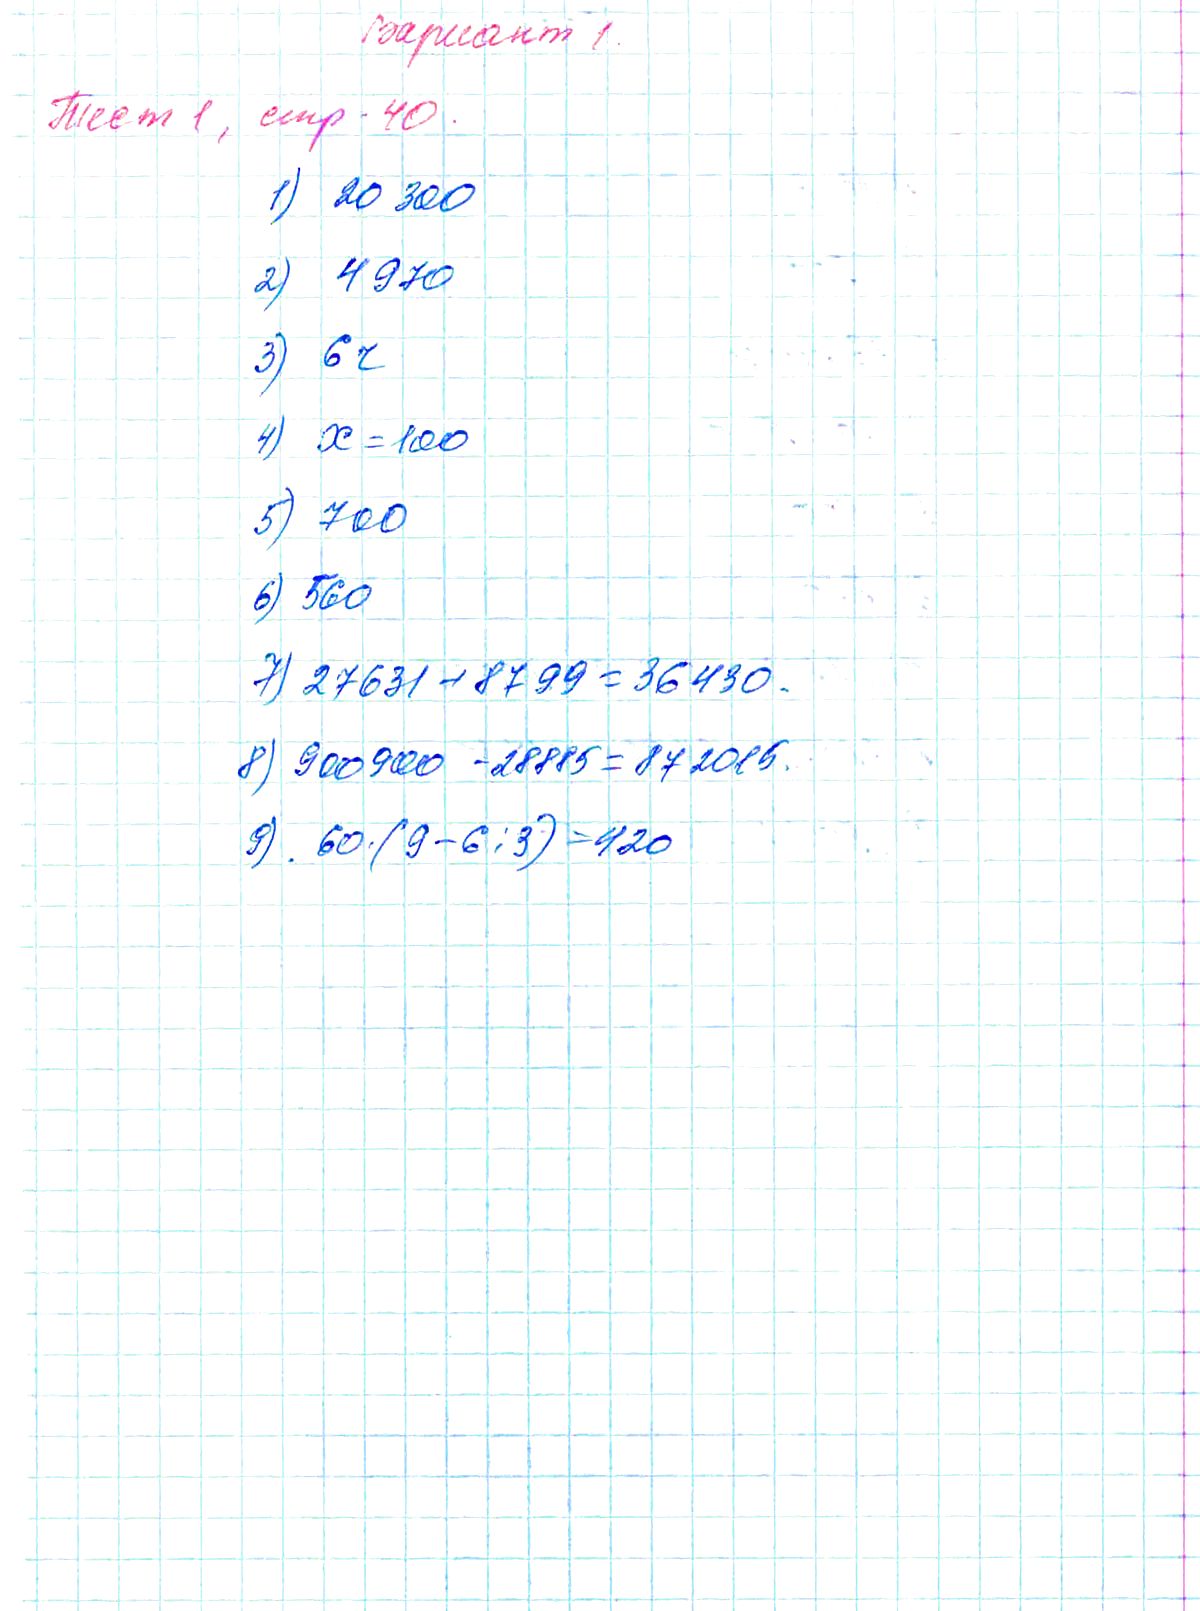 Вариант 1.
Тест 1, стр. 40.
1) 20 300
2) 4970
3) 6 ч
4) x = 100
5) 700
6) 560
7) 27631 + 8799 = 36430.
8) 900900 - 28885 = 872015.
9). 60·(9 - 6 : 3) = 420